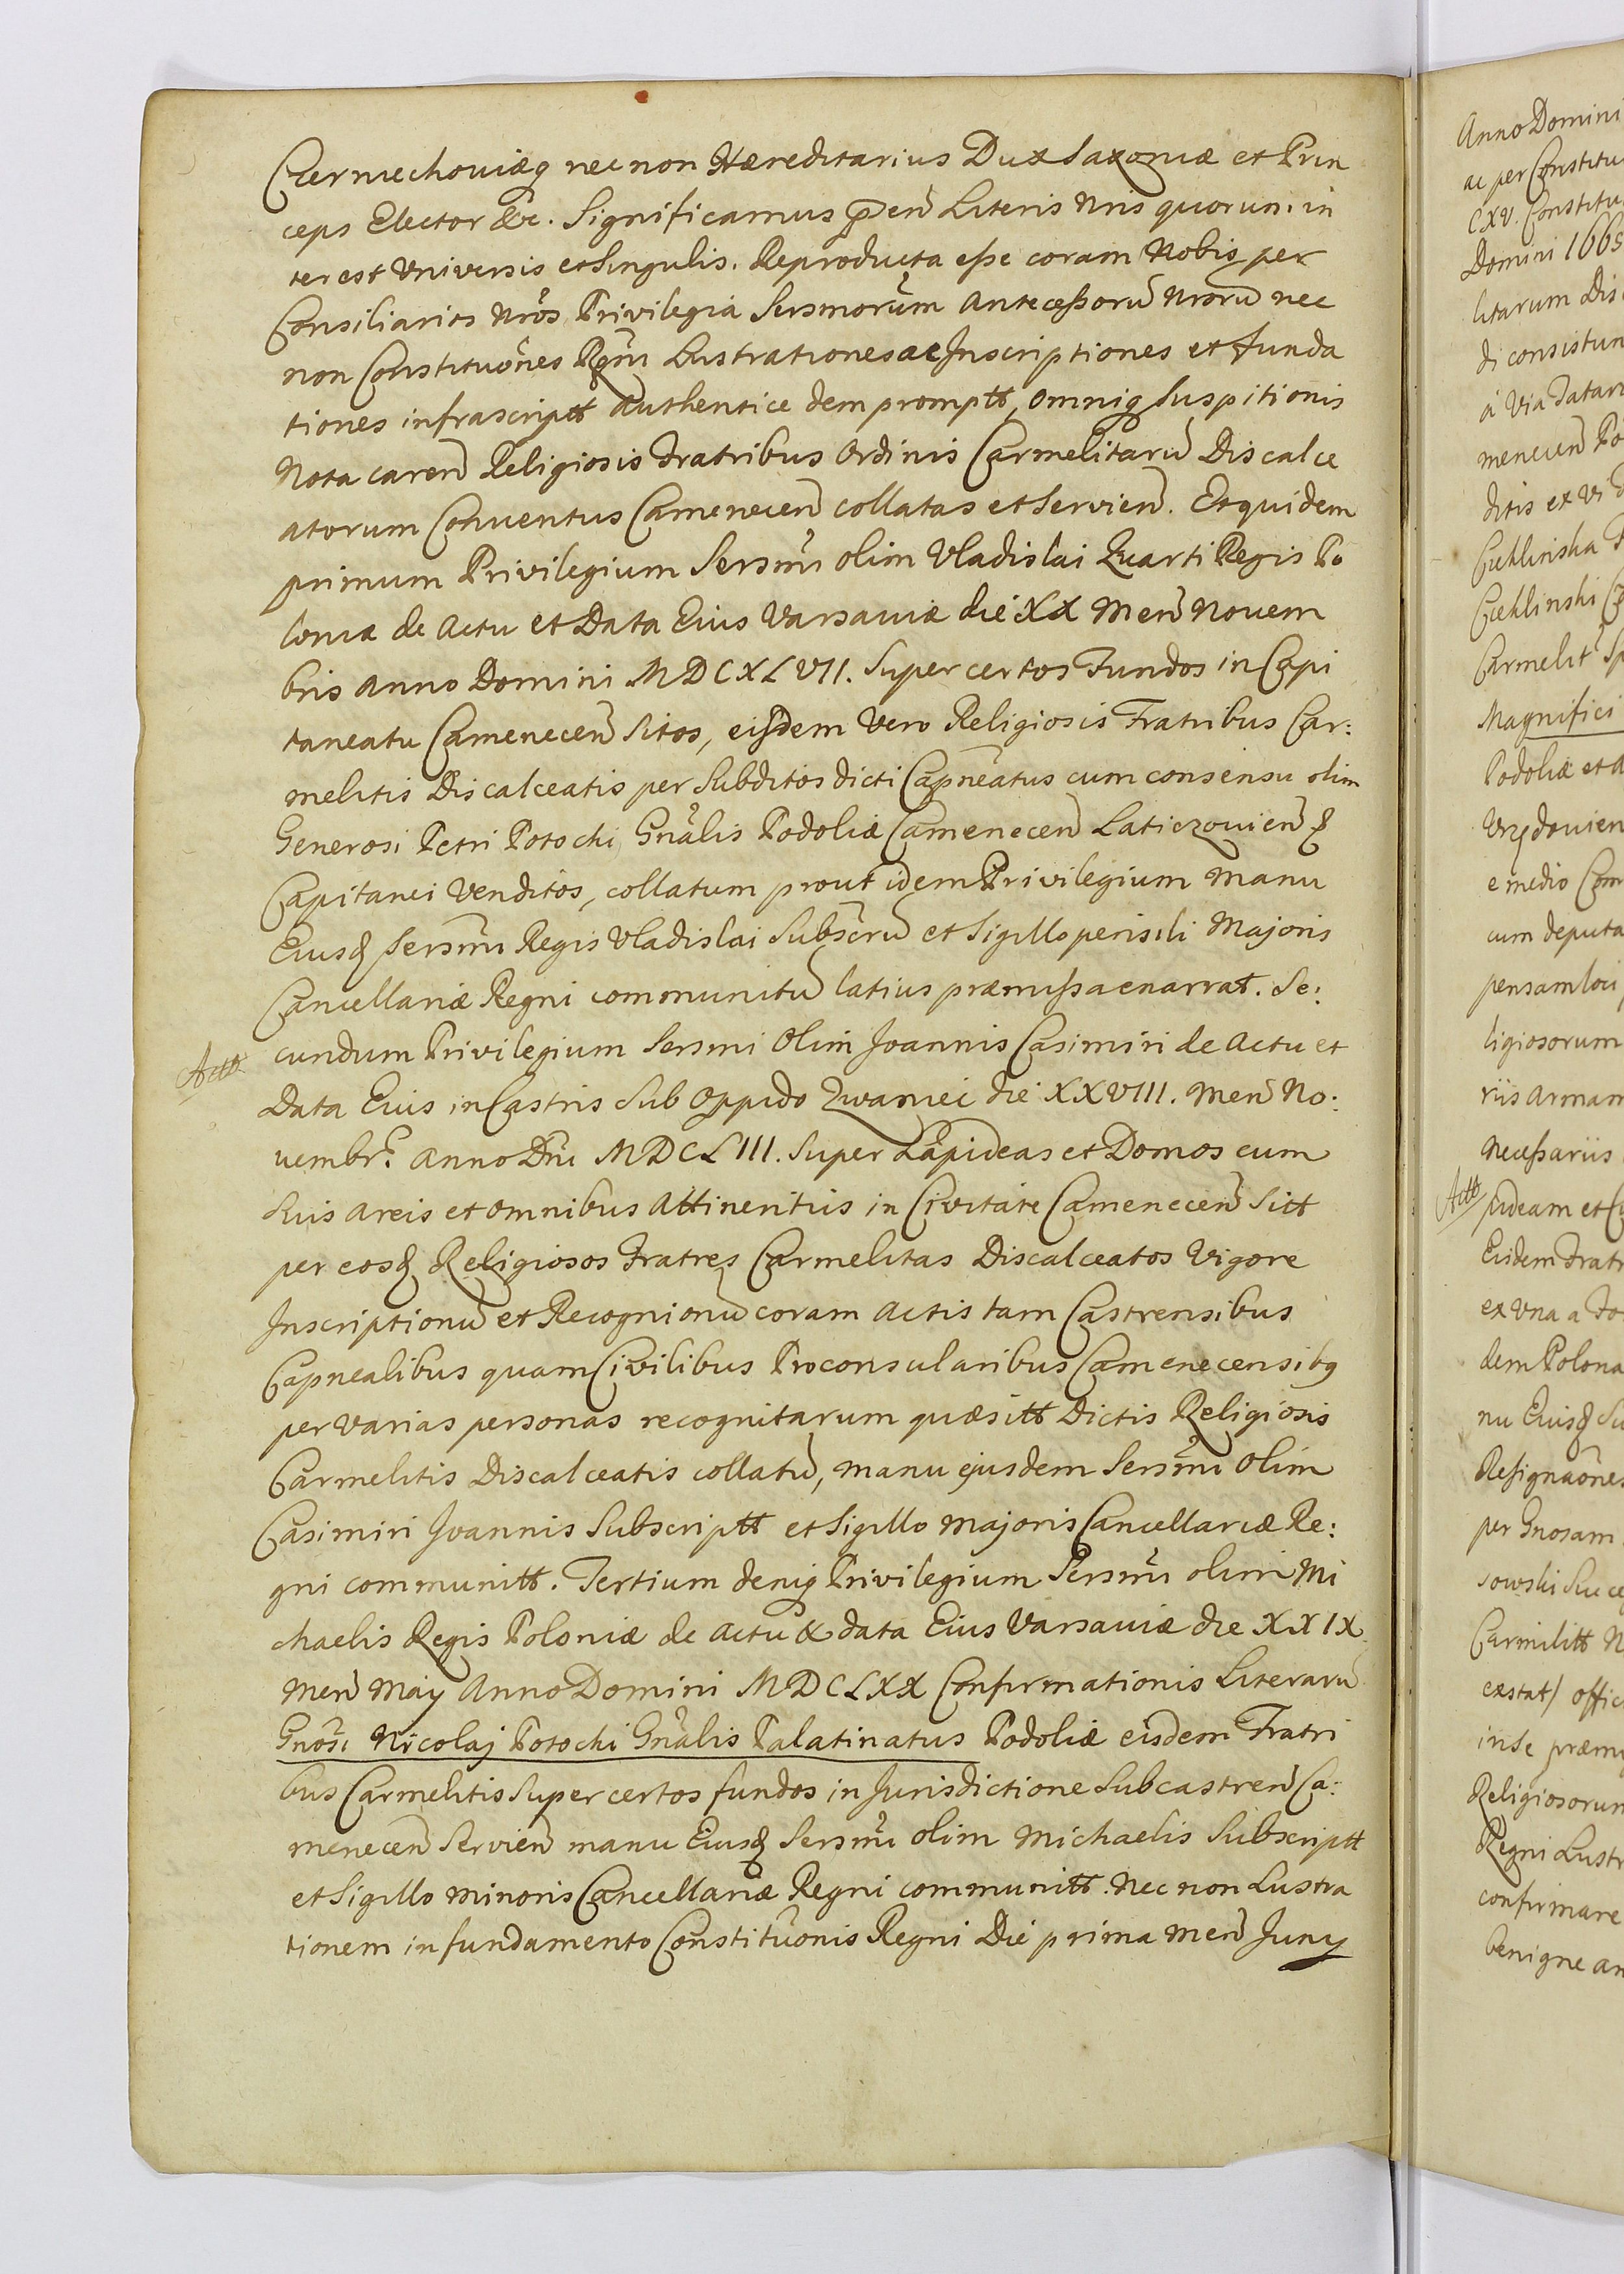 Czerniechoviæq nec non Hæreditarius Dux Saxoniæ et Prin
ceps Elector &c. Significamus p̄en̄ Literis Nris quorum in
terest Universis et Singulis. Reproducta esse coram Nobis per
Consiliarios Nrōs Privilegia Sersmorum Antecessorū Nrorū nec
non Constitutōnes Rgni Lustrationes ac Inscriptiones et funda
tiones infrascriptt Authentice dem promptt, Omniq Suspitionis
Nota caren̄ Religiosis Fratribus Ordinis Carmelitarū Discalce
atorum Conventus Camenecen̄ collatas et Servien̄. Et quidem
primum Privilegium Sersmi olim Vladislai Quarti Regis Po
loniæ de Actu et Data Eius Varsaviæ die XX Men̄ Novem
bris Anno Domini MDCXLVII. Super certos Fundos in Capi
taneatu Camenecen̄ Sitos, eisdem Vero Religiosis Fratribus Car:
melitis Discalceatis per Subditos dicti Capneatus cum consensu olim
Generosi Petri Potocki Gnālis Podoliæ Camenecen̄ Laticzovien̄ &
Capitanei Venditos, collatum prout idem Privilegium Manu
Eiusd Sersmi Regis Vladislai Subscru et Sigillo pensili Majoris
Cancellariæ Regni communitū latius præmissa enarrat. Se:
Actt
cundum Privilegium Sersmi Olim Joannis Casimiri de Actu et
Data Eius in Castris Sub Oppido Zwaniei die XXVIII. Men̄ No:
uembr. Anno Dni MDCLIII. Super Lapideas et Domos cum
Suis areis et omnibus Attinentiis in Civitate Camenecen̄ Sitt
per eosd Religiosos Fratres Carmelitas Discalceatos Vigore
Inscriptionū et Recognionū coram Actis tam Castrensibus
Capnealibus quam Civilibus Proconsularibus Camenecensibq
per Varias personas recognitarum quæsitt Dictis Religiosis
Carmelitis Discalceatis collatū, manu ejusdem Sersmi Olim
Casimiri Joannis Subscriptt et Sigillo majoris Cancellariæ Re:
gni communitt. Tertium deniq Privilegium Sersmi olim Mi
chaelis Regis Poloniæ de Actu & data Eius Varsaviæ die XXIX
Men̄ Maÿ Anno Domini MDCLXX Confirmationis Literarū
Gnōsi Nicolaj Potocki Gnālis Palatinatus Podoliæ eisdem Fratri
bus Carmelitis Super certos fundos in Jurisdictione Subcastren̄ Ca:
menecen̄ Servien̄ manu Eiusd Sersmi olim Michaelis Subscriptt
et Sigillo minoris Cancellariæ Regni communitt. Nec non Lustra
tionem in fundamento Constitutōnis Regni Die prima Men̄ Junÿ
Anno Domini
ac per Constitu
CXV. Constitu
Domini 1665
litarum Dis
di consistun
à Via Tatar
menecen̄ Po
ditis ex vi
Carmelit
Magnifici
Podoliæ et
e medio Com
cum deputa
pensam loci
ligiosorum
riis arma
Necessariis
Actt
pideam et
Eisdem Fratr
ex Una a
dem Polona
nu Eiusd Su
Resignaōnes
per Gnosam
sowski Succe
Carmilitt N
exstat/ offic
in Se præm
Religiosorum
Regni Lustr
confirmare
benigne an